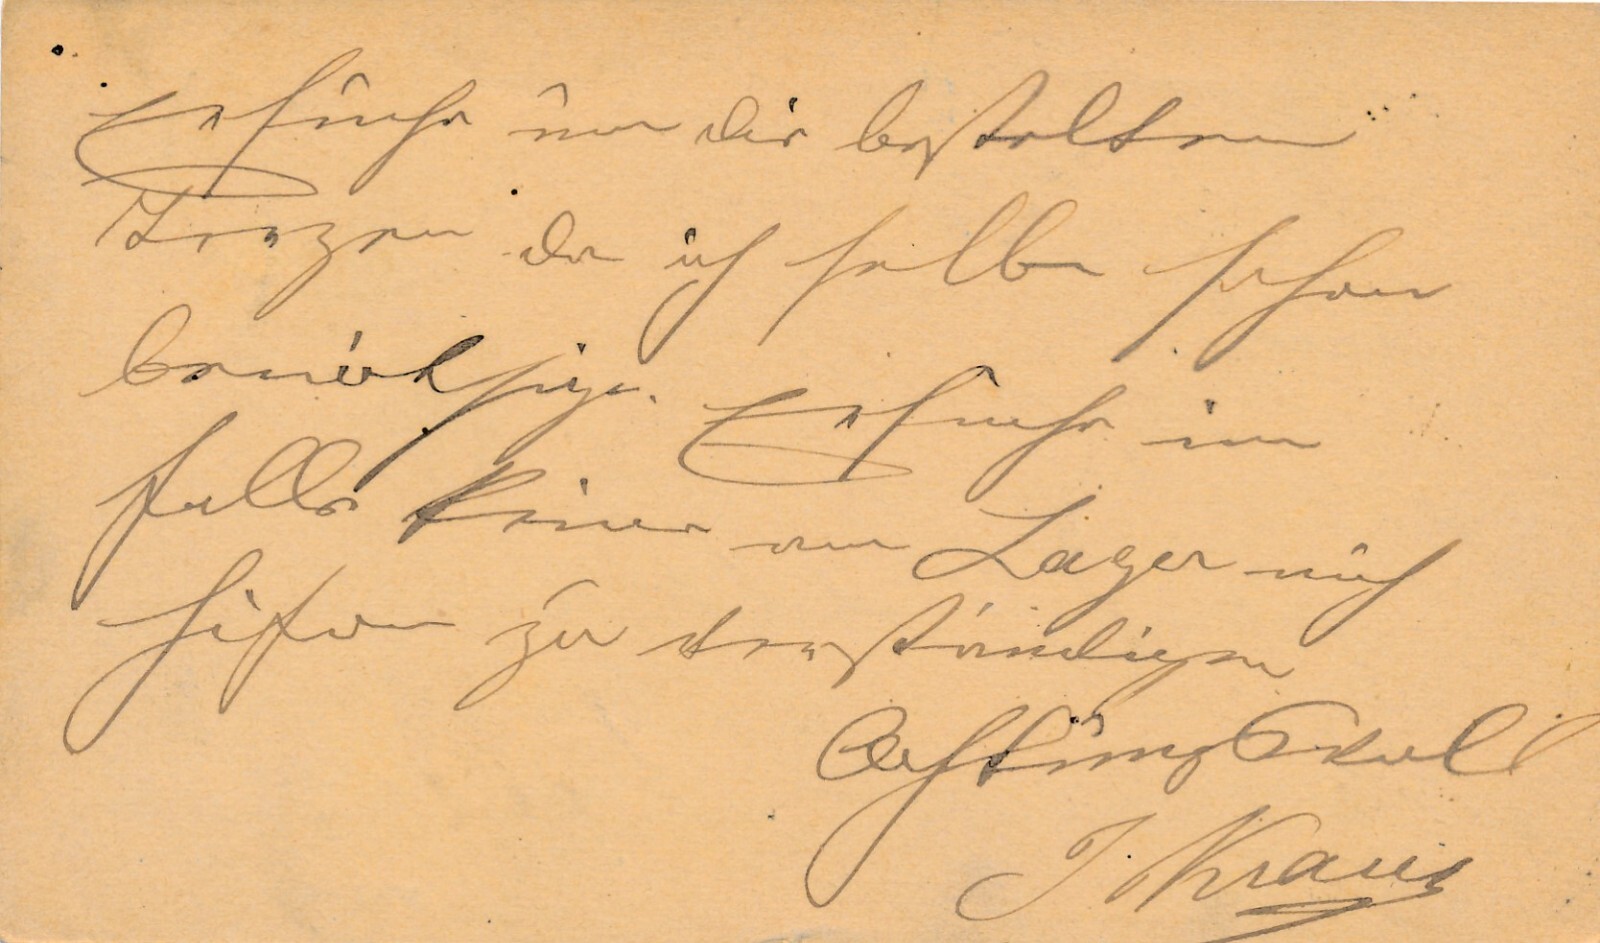 Ersuche um die bestellten
da ich selbe schon
benöthige. Ersuche im
falle keine am Lager mich
sofort zu verständigen
Achtungsvoll
J. Kraus